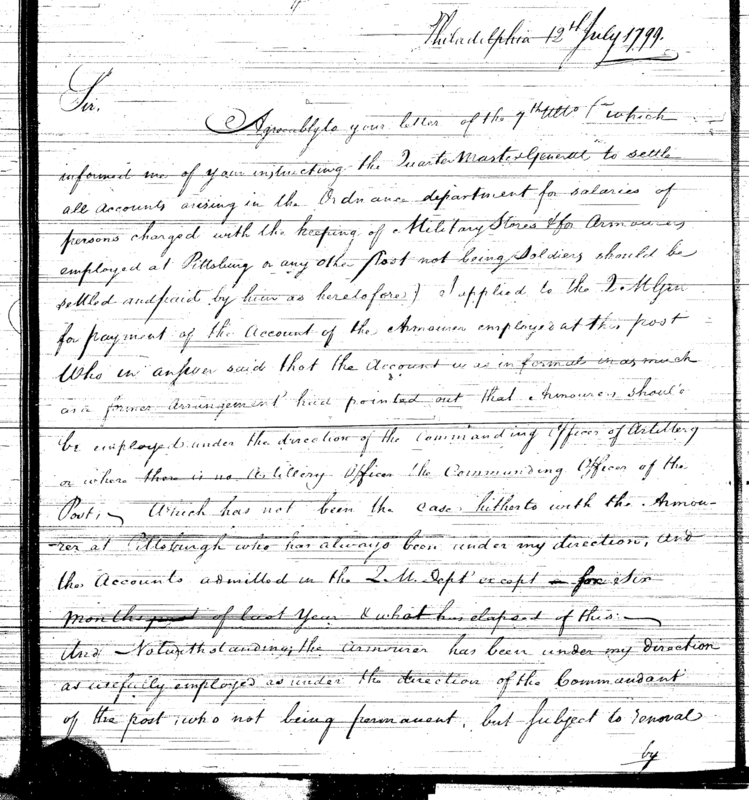 Philadelphia 12th July 1799.
Sir,
Agreeably to your letter of the 7th Ulto (which
informed me of your instructing the Quarter Master General to settle
all accounts arising in the Ordnance department for salaries of
persons charged with the keeping of Military Stores & for Armourers
employed at Pittsburg or any other Post not being Soldiers should be
settled and paid by him as heretofore) I applied to the Q M Gen
for payment of the Account of the Armourer employed at this post
Who in answer said that the Account was informal in as much
as a former arrangement had pointed out that Armourers should
be employed under the direction of the Commanding Officer of Artillery
or where there is no Artillery Officer the Commanding Officer of the
Post, Which has not been the case hitherto with the Armou-
-rer at Pittsburgh who has always been under my direction, and
the Accounts admitted in the Q. M. Dept except for Six
months of last Year & what has elapsed of this
And Notwithstanding the Armourer has been under my direction
as usefully employed as under the direction of the Commandant
of the post, who not being permanent, but Subject to removal
by